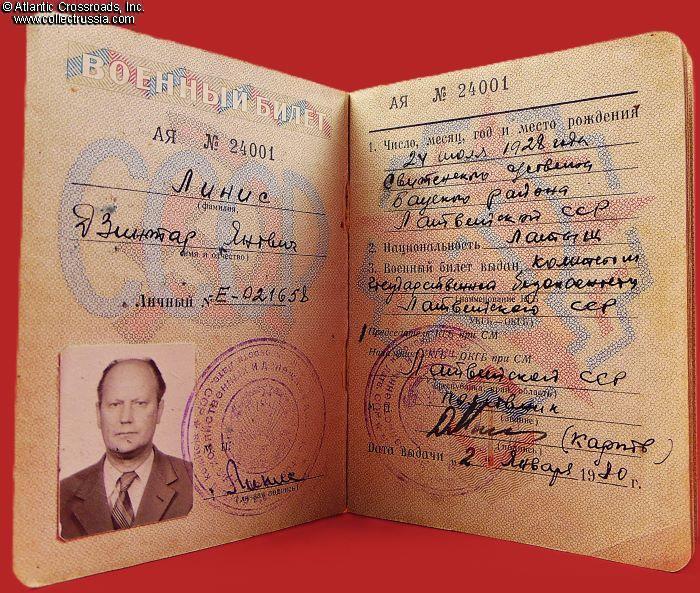 © Atlantic Crossroads, Inc.
www.collectrussia.com
ВОЕННЫЙ БИЛЕТ
СССР
АЯ № 24001
Линис
(фамилия,
Дзинтар Янович
имя и отчество)
Личный № Е-021658
М. П.
Линис
(личная подпись)
АЯ № 24001
1. Число, месяц, год и место рождения
24 июля 1928 года
Бауского района
Латвийской ССР
2. Национальность Латыш
3. Военный билет выдан Комитетом
государственной безопасности
(наименование КГБ
Латвийской ССР
УКГБ—ОКГБ)
Председатель КГБ при СМ
УКГБ—ОКГБ при СМ
Латвийской ССР
(республика, край, область)
полковник
(звание)
(подпись)
Дата выдачи „2 Января 1980 г.